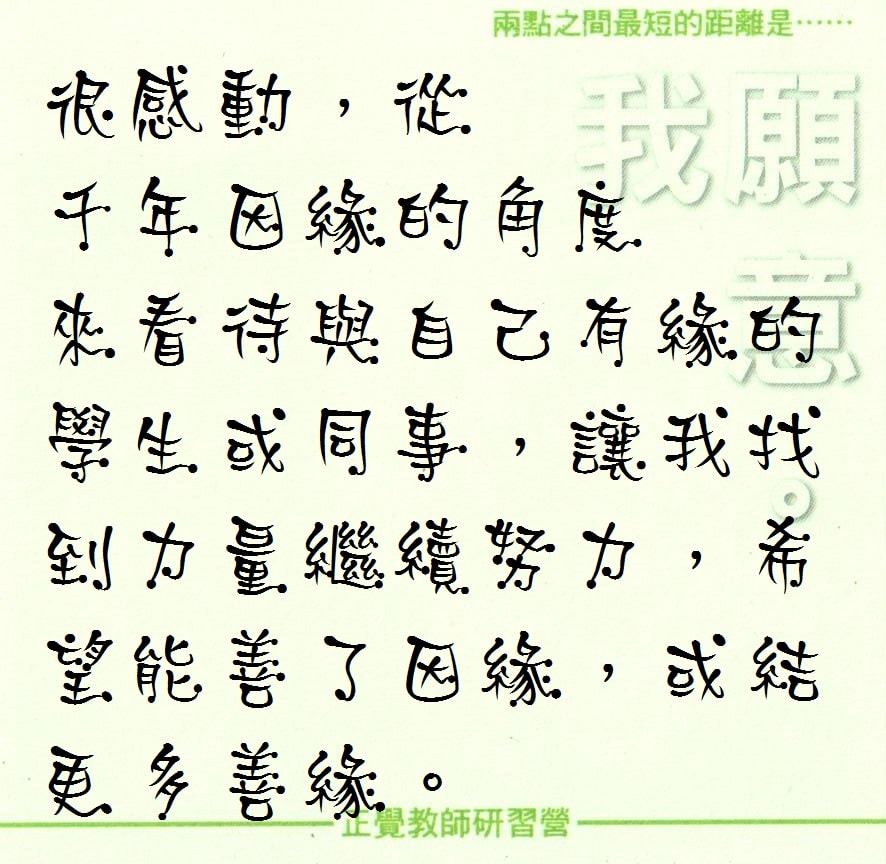 兩點之間最短的距離是……
我願意。
很感動，從
千年因緣的角度
來看待與自己有緣的
學生或同事，讓我找
到力量繼續努力，希
望能善了因緣，或結
更多善緣。
正覺教師研習營